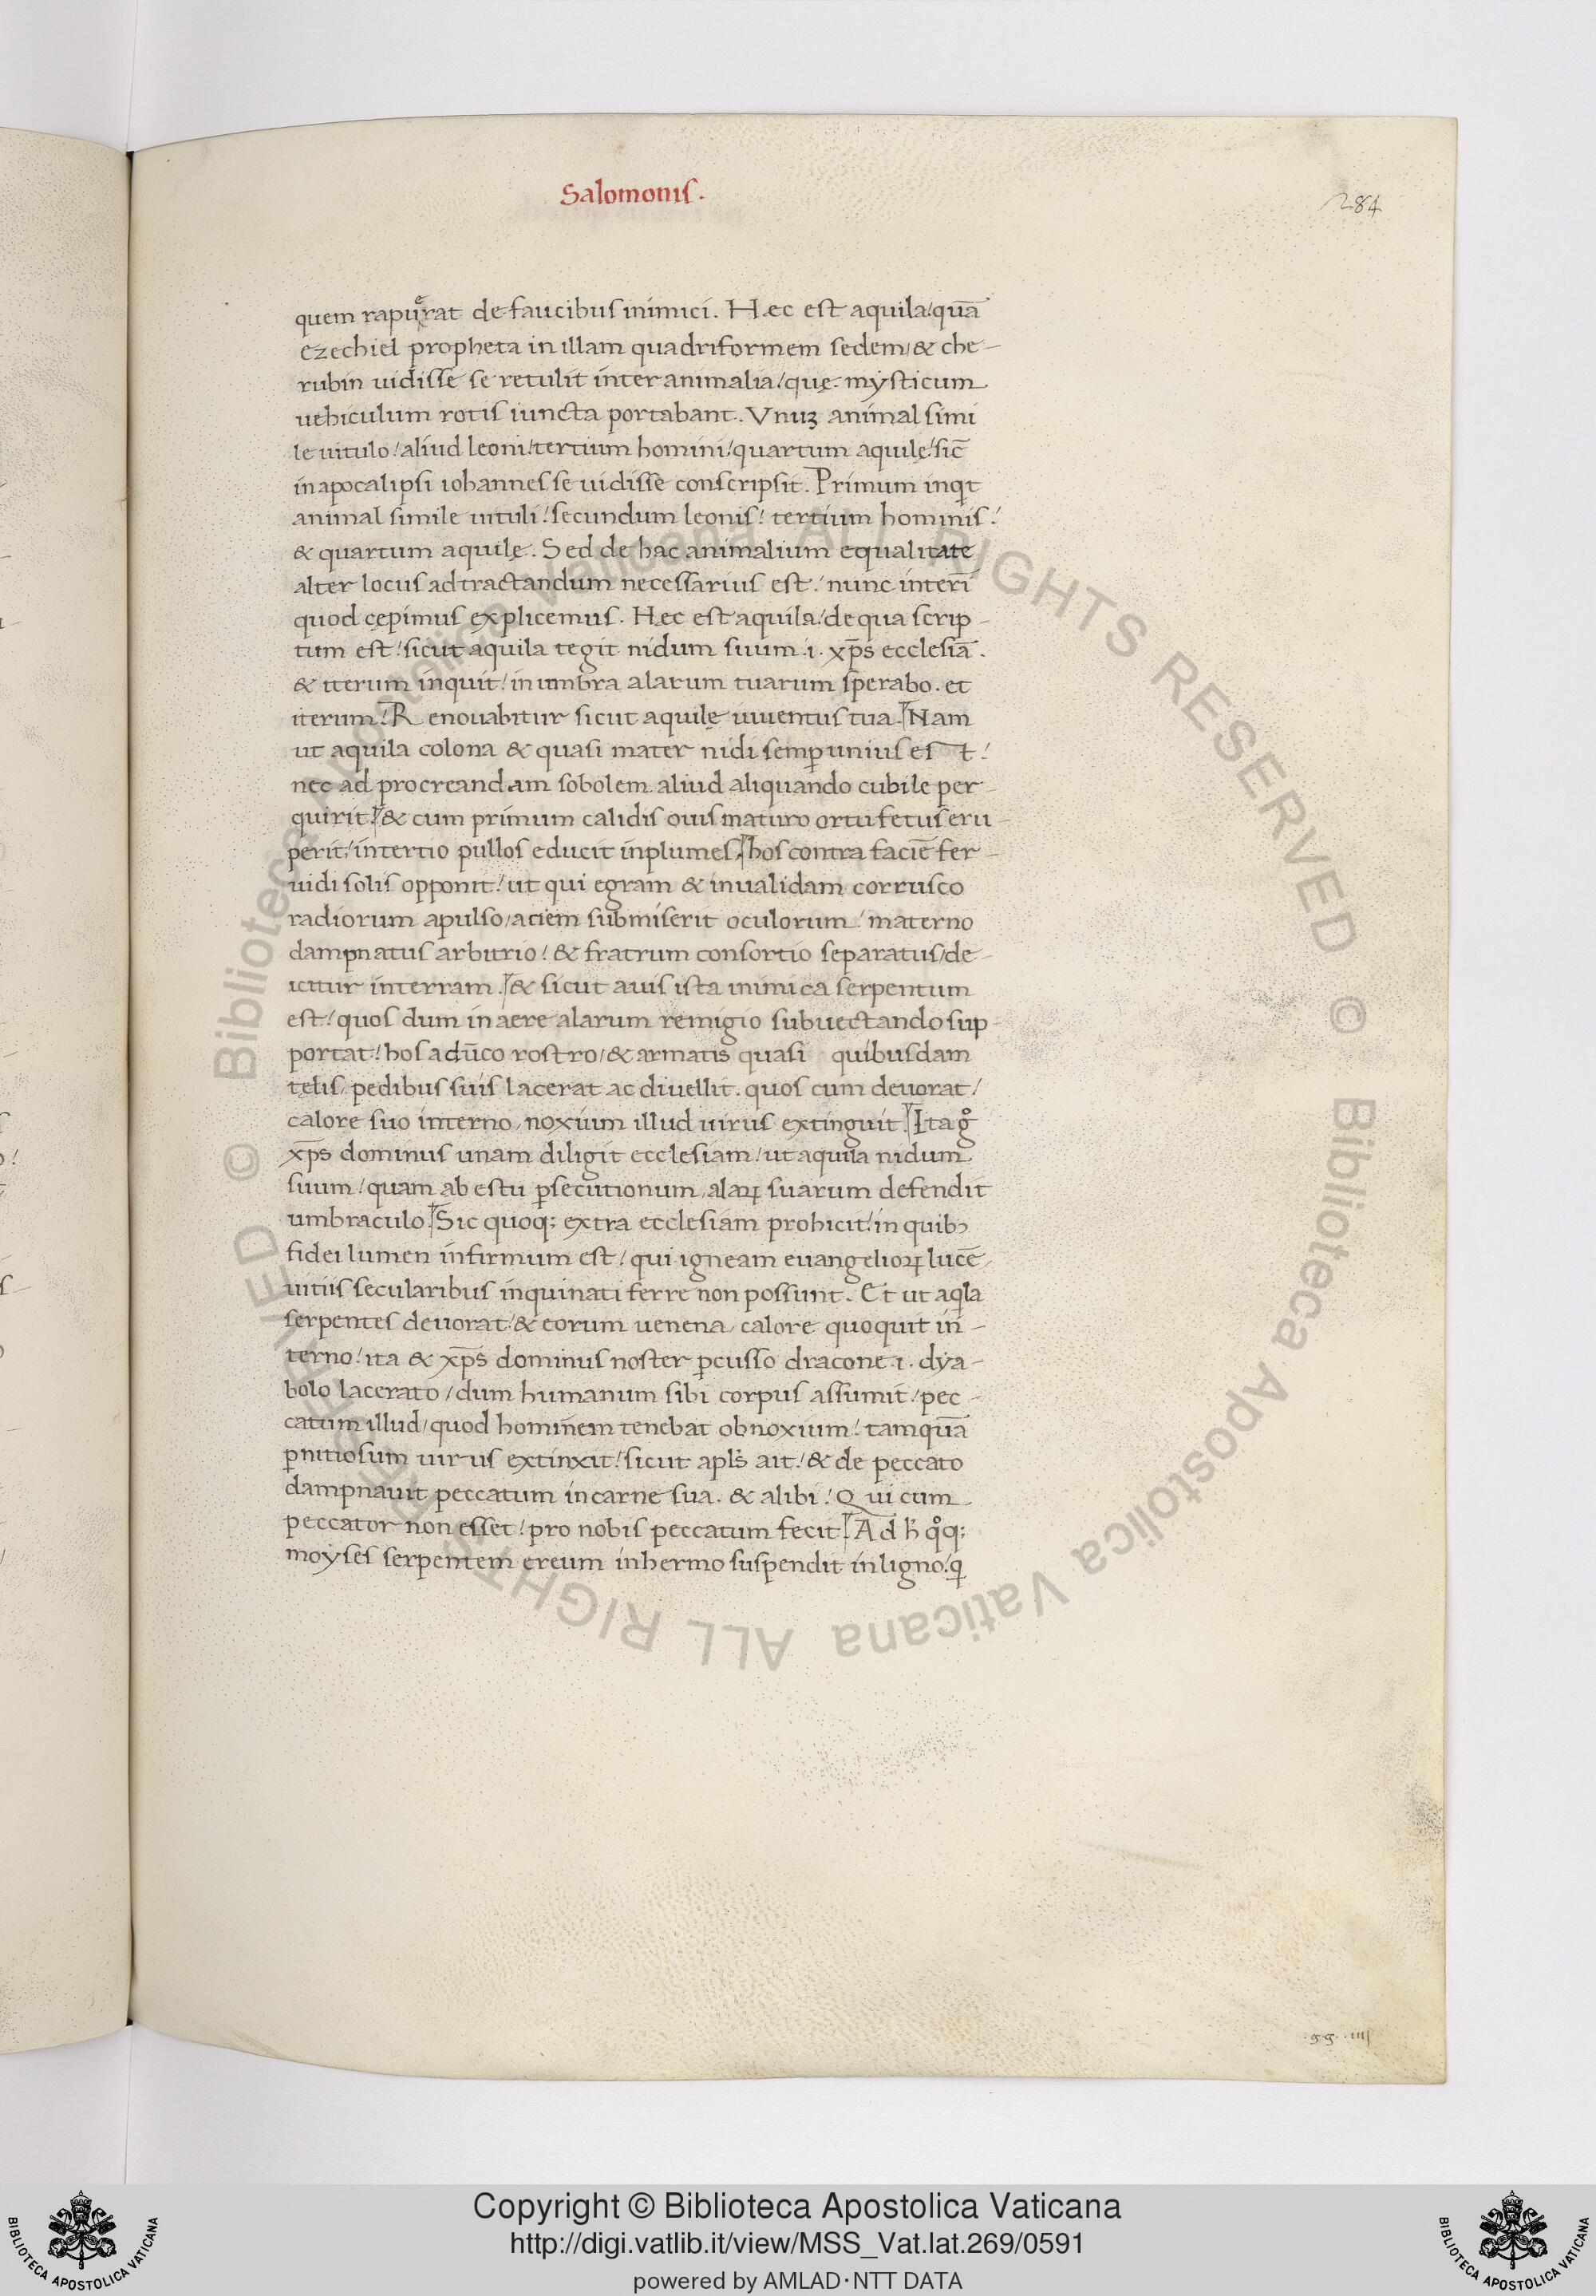 Salomonis.
284
quem rapuerat de faucibus inimici. Hæc est aquila/quā
ezechiel propheta in illam quadriformem sedem/& che-
rubin uidisse se retulit inter animalia/quę mẏsticum
uehiculum rotis iuncta portabant. Vnuꝫ animal simi
le uitulo/aliud leoni/tertium homini/quartum aquilę/sic̄
in apocalipsi iohannes se uidisse conscripsit. Primum inqͥt
animal simile uituli/secundum leonis/tertium hominis/
& quartum aquilę. Sed de hac animalium equalitate
alter locus ad tractandum necessarius est/nunc interī
quod cępimus explicemus. Hec est aquila/de qua scrip-
tum est/sicut aquila tegit nidum suum .i. xp̄s ecclesiā.
& iterum inquit/in umbra alarum tuarum sperabo. et
iterum/Renouabitur sicut aquilę iuuentus tua. Nam
ut aquila colona & quasi mater nidi semꝑ unius est/
nec ad procreandam sobolem aliud aliquando cubile per-
quirit/& cum primum calidis ouis maturo ortu fetus eru-
perit/in tertio pullos educit inplumes/hos contra faciē fer-
uidi solis opponit/ut qui egram & inualidam corrusco
radiorum apulso/aciem submiserit oculorum/materno
dampnatus arbitrio/& fratrum consortio separatus/de-
icitur in terram./& sicut auis ista inimica serpentum
est/quos dum in aere alarum remigio subuectando sup-
portat/hos adūco rostro/& armatis quasi quibusdam
telis/pedibus suis lacerat ac diuellit. quos cum deuorat/
calore suo interno/noxium illud uirus extinguit. Ita gͦ
xp̄s dominus unam diligit ecclesiam/ut aquila nidum
suum/quam ab estu ꝑsecutionum/alaꝝ suarum defendit
umbraculo. Sic quoq; extra ecclesiam prohicit/in quibꝰ
fidei lumen infirmum est/qui igneam euangelioꝝ lucē/
uitiis secularibus inquinati ferre non possunt. Et ut aqͥla
serpentes deuorat/& eorum uenena/calore quoquit in-
terno/ita & xp̄s dominus noster ꝑcusso dracone .i. dẏa-
bolo lacerato/dum humanum sibi corpus assumit/pec-
catum illud/quod hominem tenebat obnoxium/tamquā
ꝑnitiosum uirus extinxit/sicut apls̄ ait/& de peccato
dampnauit peccatum in carne sua. & alibi/Qui cum
peccator non esset/pro nobis peccatum fecit. Ad h̄ qͦq;
moẏses serpentem ereum in hermo suspendit in ligno/qͥ
Copyright © Biblioteca Apostolica Vaticana
http://digi.vatlib.it/view/MSS_Vat.lat.269/0591
powered by AMLAD·NTT DATA